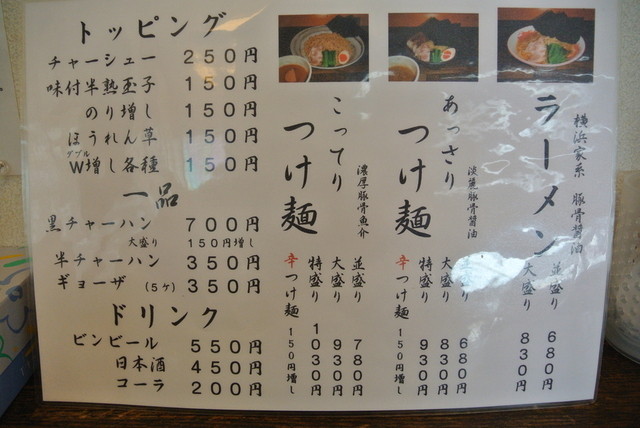 横浜家系 豚骨醤油
ラーメン
並盛り 680円
大盛り 830円
淡麗豚骨醤油
あっさり
つけ麺
並盛り 680円
大盛り 830円
特盛り 930円
辛つけ麺 150円増し
濃厚豚骨魚介
こってり
つけ麺
並盛り 780円
大盛り 930円
特盛り 1030円
辛つけ麺 150円増し
トッピング
チャーシュー 250円
味付半熟玉子 150円
のり増し 150円
ほうれん草 150円
ダブル
W増し各種 150円
一品
黒チャーハン 700円
大盛り 150円増し
半チャーハン 350円
ギョーザ (5ケ) 350円
ドリンク
ビンビール 550円
日本酒 450円
コーラ 200円